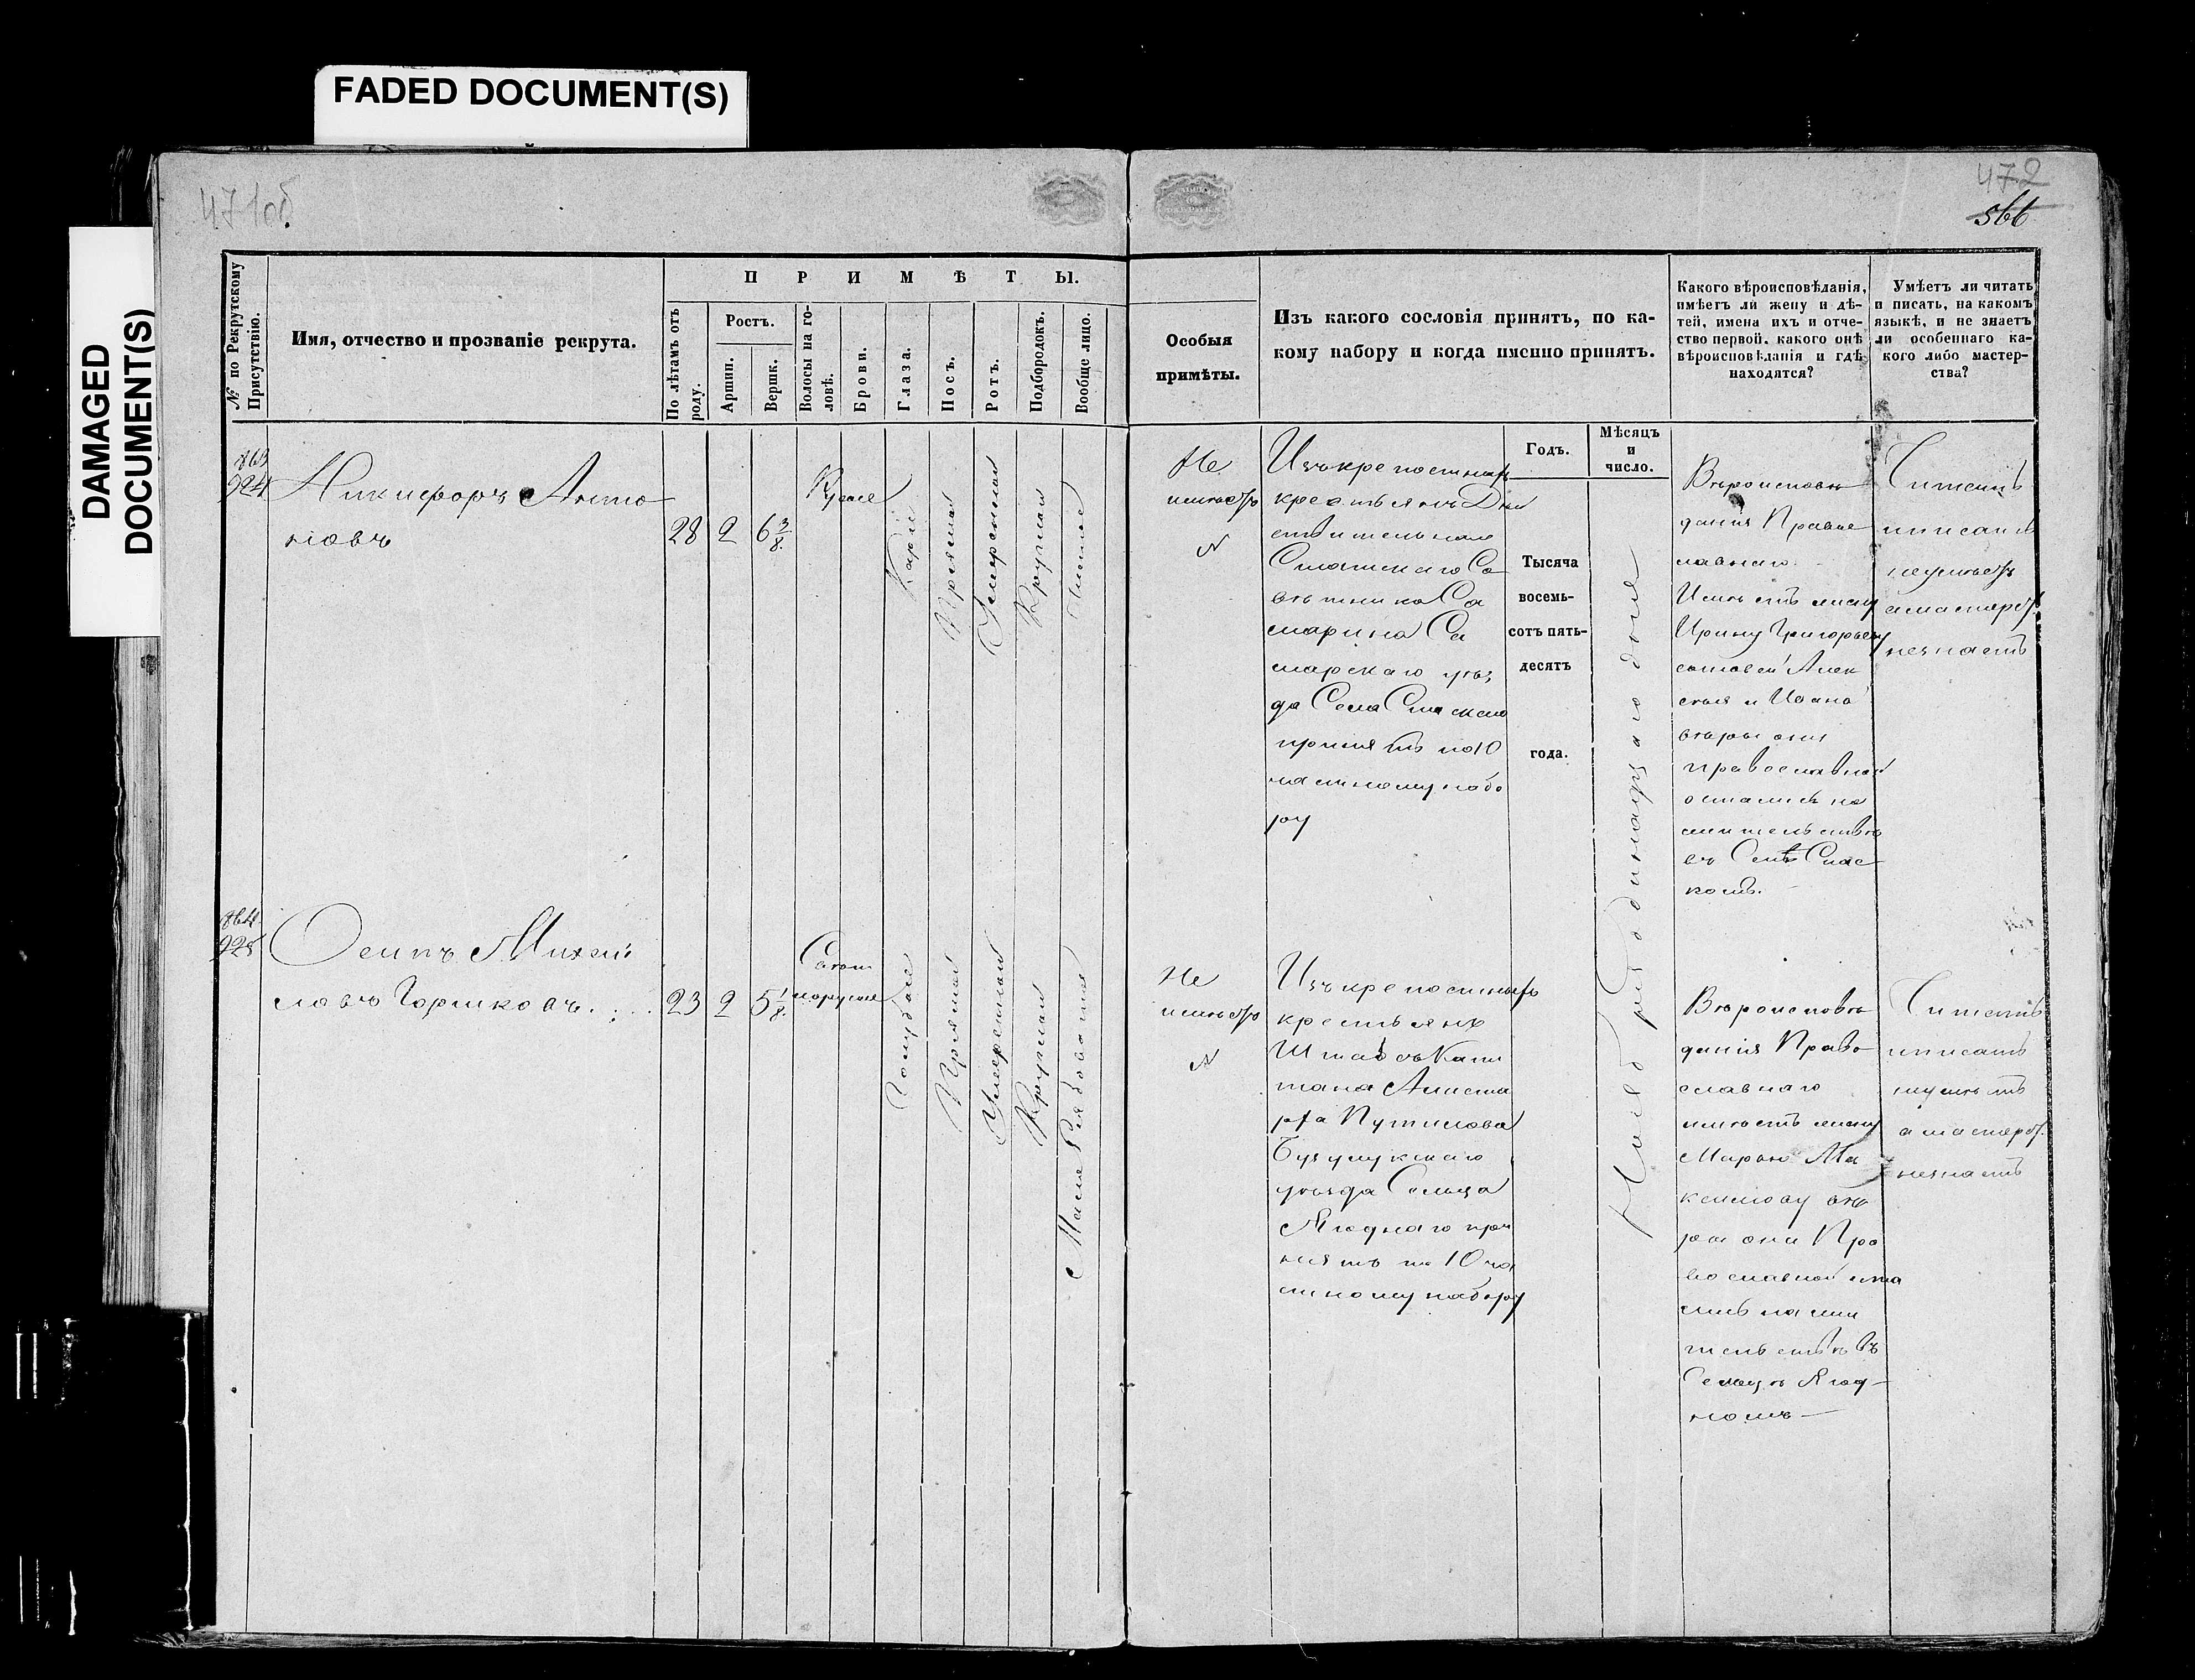 FADED DOCUMENT(S)
DAMAGED
DOCUMENT(S)
471об
472
566
№ по Рекрутскому
Присутствію.
Имя, отчество и прозваніе рекрута.
П Р И М Ѣ Т Ы.
По лѣтамъ отъ
роду.
Ростъ.
Аршин.
Вершк.
Волосы на го-
ловѣ.
Брови.
Глаза.
Носъ.
Ротъ.
Подбородокъ.
Вообще лицо.
Особыя
примѣты.
Изъ какого сословія принятъ, по ка-
кому набору и когда именно принятъ.
Какого вѣроисповѣданія,
имѣетъ ли жену и дѣ-
тей, имена ихъ и отче-
ство первой, какого онѣ
вѣроисповѣданія и гдѣ
находятся?
Умѣетъ ли читать
и писать, на какомъ
языкѣ, и не знаетъ
ли особеннаго ка-
кого либо мастер-
ства?
Годъ.
Мѣсяцъ
и
число.
863
924
Никифоръ Анто
новъ
28
2
6 3/8.
Русые
Каріе
Прямой
Умеренный
Круглый
Чистое
Не
имѣетъ
Изъ крепостныхъ
крестьянъ Дѣй
ствительнаго
Статскаго Со
вѣтника Са
марина Са
марскаго уѣз
да Села Спаскаго
принятъ по 10
частному набо
ру
Тысяча
восемь-
сотъ пять-
десятъ
года.
Вѣроисповѣ
данія Право
славнаго
Имѣетъ жену
Ирину Григорьеву
сыновей Алек
сѣя и Ивана
вѣры они
православной
остались на
жительствѣ
въ Селѣ Спас
комъ.
Читать
и писать
неумѣетъ
а мастерст.
незнаетъ
864
925
Осипъ Михай
ловъ Горшковъ.
23
2
5 1/8.
Светло
порусые
Голубые
Прямой
Умеренный
Круглый
Мало Рябоватое
Не
имѣетъ
Изъ крепостныхъ
крестьянъ
Штабсъ Капи
тана Алиста
рха Путилова
Бузулукскаго
уѣзда Сельца
Ягоднаго при
нятъ по 10 ча
стному набору
Вѣроисповѣ
данія Право
славнаго
имѣетъ жену
Марью Ма
ксимову вѣ
ры они Пра
вославной оста
лись на жи
тельствѣ въ
Сельцѣ Ягод
номъ
Читать
и писать
неумѣетъ
а мастерст.
незнаетъ